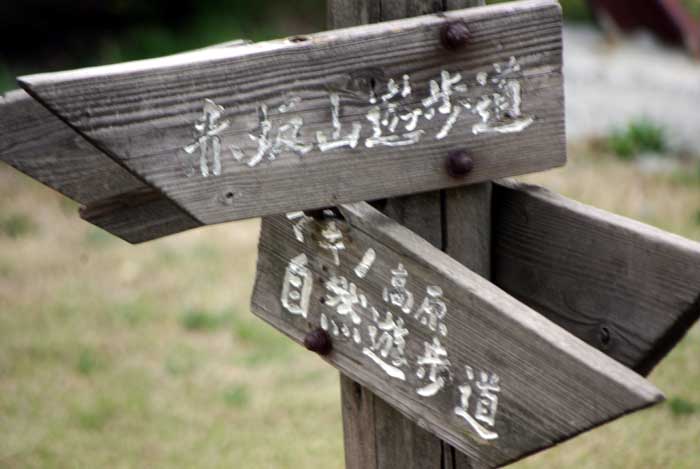 赤坂山遊歩道
ノ高原
自然遊歩道